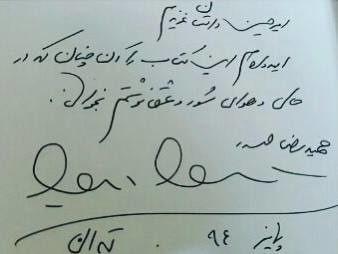 امیرحسین و آرتان عزیزم
امیدوارم این کتاب را آن چنان که در
حال و هوای شور و عشق نوشتم بخوانی.
حمیدرضا صدر
پاییز ۹۴ . تهران